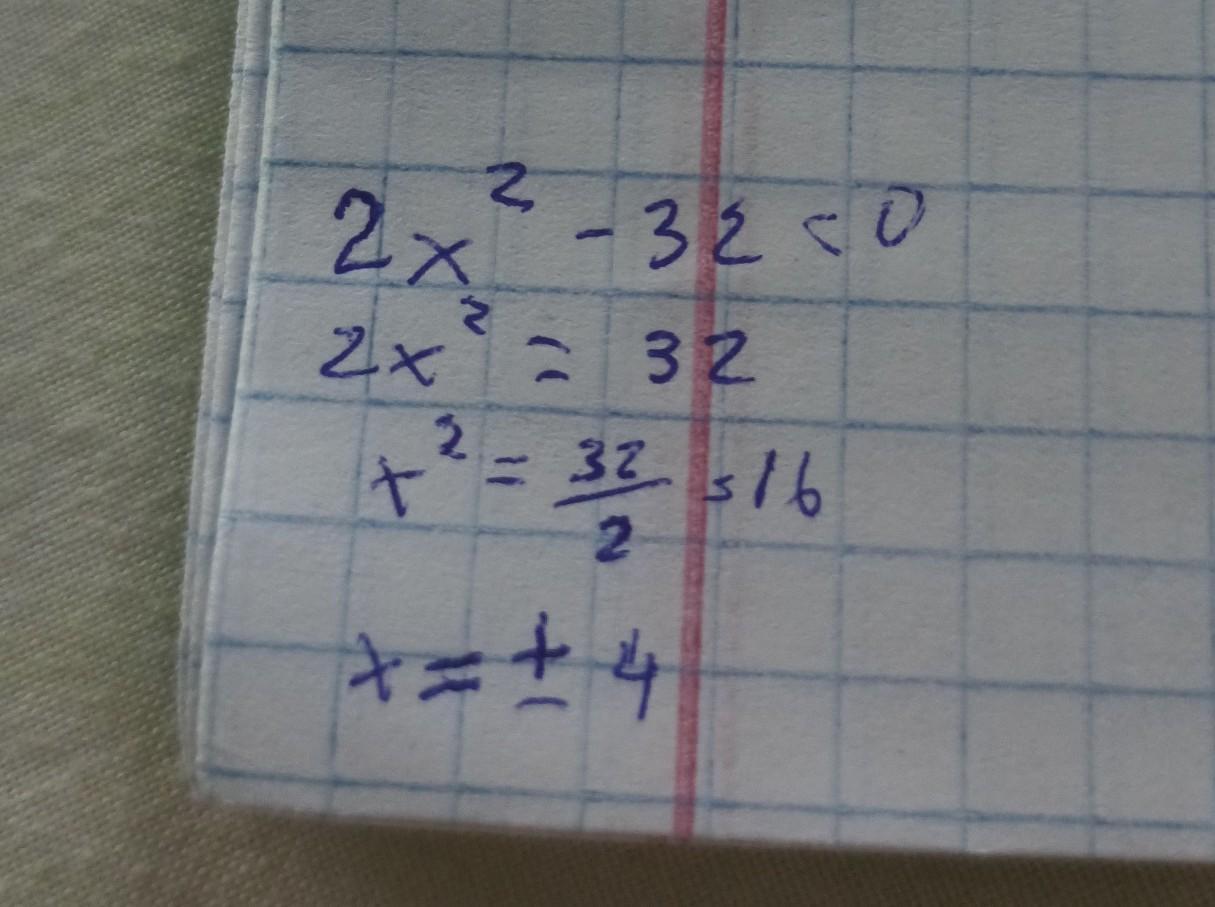 2x² - 32 = 0
2x² = 32
x² = 32/2 = 16
x = ± 4